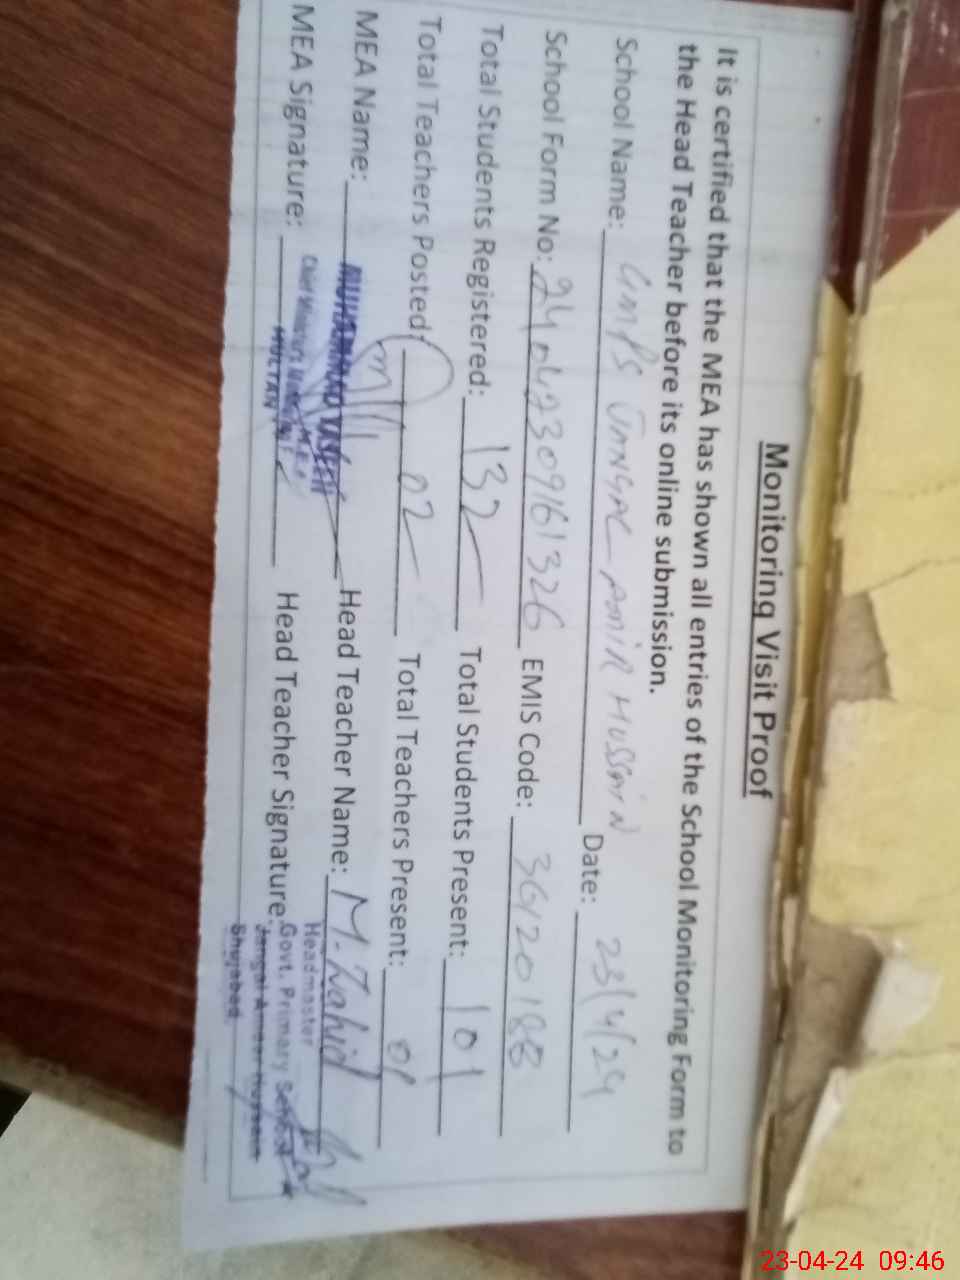 Monitoring Visit Proof
It is certified that the MEA has shown all entries of the School Monitoring Form to
the Head Teacher before its online submission.
School Name: GMPS JANGAL AMIR HUSSAIN Date: 23/4/24
School Form No: EMIS Code: 36120188
Total Students Registered: 132 Total Students Present: 101
Total Teachers Posted: 02 Total Teachers Present: 01
MEA Name: MUHAMMAD Head Teacher Name: M. Zahid
MEA Signature: MULTAN Head Teacher Signature:
Headmaster
Govt. Primary School
Jangal Ameer Hussain
Shujabad
23-04-24 09:46